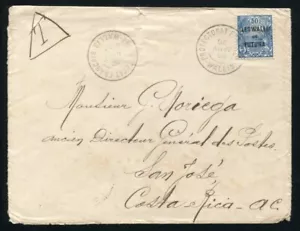 T
50
ILES WALLIS
et
FUTUNA
Monsieur G. Noriega
ancien Directeur Général des Postes
San José,
Costa-Rica - A.C.